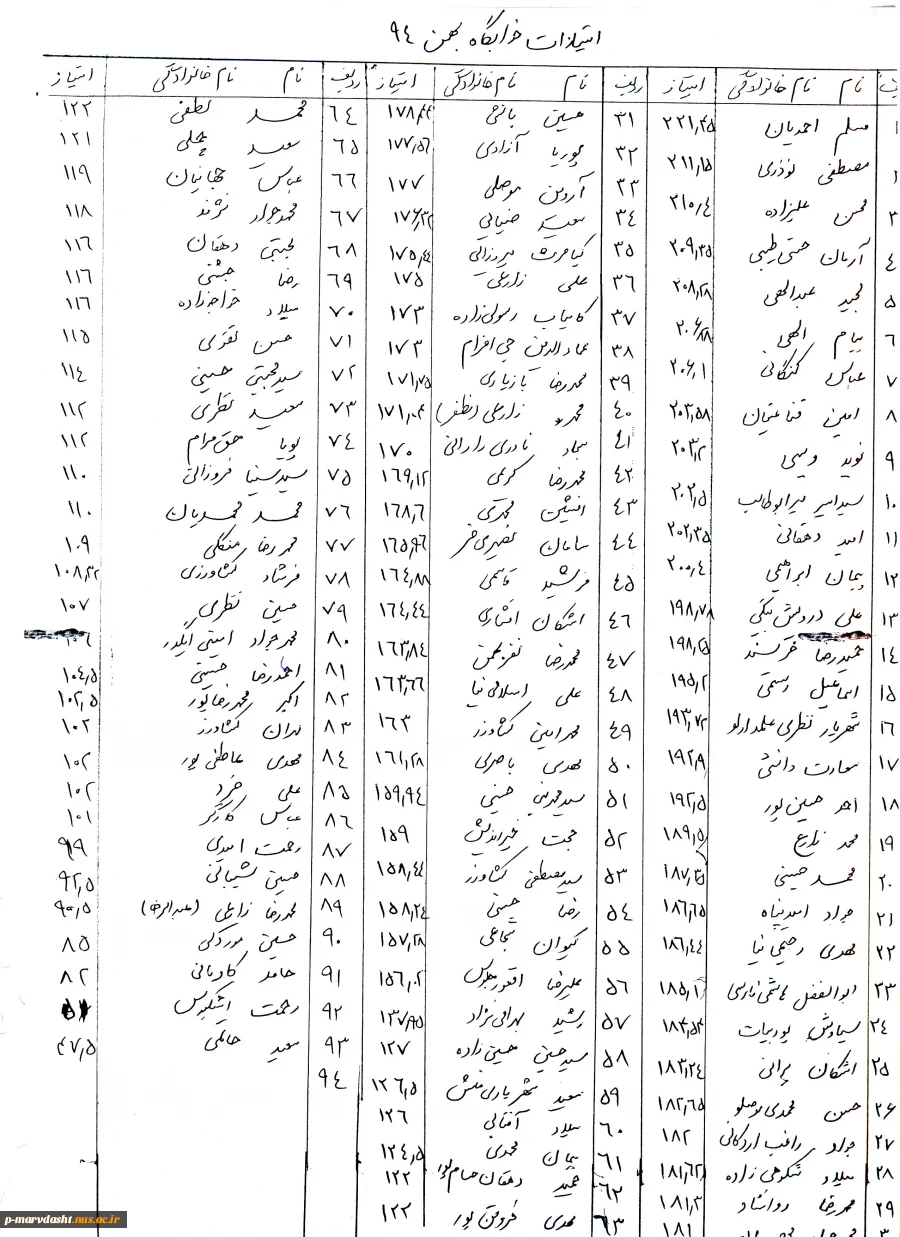 امتیازات خوابگاه بهمن ۹۴
نام نام خانوادگی امتیاز
مسلم احمدیان ۲۲۱,۴۵
مصطفی نوذری ۲۱۱,۱۵
محسن علیزاده ۲۱۰,۴
آرمان حتی طیبی ۲۰۹,۳۵
مجید عبدالهی ۲۰۸,۲۸
پیام الهی ۲۰۶,۸۸
عباس کنگانی ۲۰۶,۱
امین قناعتیان ۲۰۳,۵۸
نوید ویسی ۲۰۳,۲
سیدامیر میرابوطالب ۲۰۲,۵
امید دهقانی ۲۰۲,۳۵
پیمان ابراهیمی ۲۰۰,۴
علی درویش بیگی ۱۹۸,۷۸
حمیدرضا خرسند ۱۹۸,۲۵
اسماعیل رستمی ۱۹۵,۲
شهریار نظری علمدارلو ۱۹۳,۷۲
سعادت دانشی ۱۹۲,۹
احمد حسین پور ۱۹۲,۵
محمد زارع ۱۸۹,۵
محمد حسینی ۱۸۷,۳۵
جواد امیدپناه ۱۸۶,۶۵
مهدی رحیمی نیا ۱۸۶,۴۴
ابوالفضل هاشمی فارسی
سیاوش پوربیات ۱۸۴,۵۴
اشکان یرانی ۱۸۳,۳۴
حسن محمدی موصلو ۱۸۲,۶۵
جواد راغب اردکانی ۱۸۲
میلاد شکوهی زاده ۱۸۱,۶۲
محمدرضا روانشاد ۱۸۱,۳
۱۸۱
ردیف نام نام خانوادگی امتیاز
۳۱ حسین بانخی ۱۷۸,۴۴
۳۲ پوریا آزادی ۱۷۷,۵۶
۳۳ آروین موصلی ۱۷۷
۳۴ سعید ضیایی ۱۷۶,۳۲
۳۵ کیامرث میرزائی ۱۷۵,۴۴
۳۶ علی زارعی ۱۷۵
۳۷ کامیاب رسولی زاده ۱۷۳
۳۸ عمادالدین حی افزام ۱۷۳
۳۹ محمدرضا بازیاری ۱۷۱,۷۵
۴۰ محمد زارعی (مظفر) ۱۷۱,۰۴
۴۱ سجاد نادری دارانی ۱۷۰
۴۲ محمدرضا کرمی ۱۶۹,۱۲
۴۳ افشین محمدی ۱۶۸,۶
۴۴ سامان نصیری فر ۱۶۵,۹۶
۴۵ فرشید قاسمی ۱۶۴,۸۸
۴۶ اشکان افشاری ۱۶۴,۴۴
۴۷ محمدرضا نفربهمن ۱۶۳,۸۴
۴۸ علی اسلامی نیا ۱۶۳,۶۶
۴۹ محمدامین کشاورز ۱۶۳
۵۰ مهدی باصری ۱۶۱,۲۸
۵۱ سیدمهدی حسینی ۱۵۹,۹۴
۵۲ حجت خیراندیش ۱۵۹
۵۳ سیدمصطفی کشاورز ۱۵۸,۴۴
۵۴ رضا حسینی ۱۵۸,۲۴
۵۵ کیوان شجاعی ۱۵۷,۲۸
۵۶ علیرضا افتورجلوس ۱۵۶,۰۲
۵۷ رشید مهرانی نژاد ۱۳۷,۹۵
۵۸ سیدحسین حسینی زاده ۱۲۷
۵۹ سعید شهریاری منش ۱۲۶,۵
۶۰ میلاد آقائی ۱۲۶
۶۱ پیمان محمدی ۱۲۴,۵
۶۲ حمید دهقان حسام پور ۱۲۲
۶۳ مهدی فروتن پور ۱۲۲
ردیف نام نام خانوادگی امتیاز
۶۴ محمد لطفی ۱۲۲
۶۵ سعید چملی ۱۲۱
۶۶ عباس جهانیان ۱۱۹
۶۷ محمدجواد نژند ۱۱۸
۶۸ مجتبی دهقان ۱۱۶
۶۹ رضا جشنی ۱۱۶
۷۰ میلاد خواجه زاده ۱۱۶
۷۱ حسن تقوی ۱۱۵
۷۲ سیدمجتبی حسینی ۱۱۴
۷۳ سعید نظری ۱۱۲
۷۴ پویا حق مرام ۱۱۲
۷۵ سیدسینا فروزانی ۱۱۰
۷۶ محمد محمدیان ۱۱۰
۷۷ محمدرضا منگلی ۱۰۹
۷۸ فرشاد کشاورزی ۱۰۸,۳۲
۷۹ حسین نظری ۱۰۷
۸۰ محمدجواد امینی ایلدر ۱۰۶
۸۱ احمدرضا حسینی ۱۰۴,۵
۸۲ اکبر محمدرضاپور ۱۰۲,۵
۸۳ مهران کشاورز ۱۰۲
۸۴ مهدی عاطفی پور ۱۰۲
۸۵ علی خرد ۱۰۲
۸۶ عباس کارگر ۱۰۱
۸۷ رحمت امیدی ۹۹
۸۸ حسین شیبانی ۹۲,۵
۸۹ محمدرضا زارعی (عبدالرضا) ۹۰,۵
۹۰ حسین موردکی ۸۵
۹۱ حامد کاویانی ۸۲
۹۲ رحمت اشکبوس
۹۳ سعید حاتمی ۴۷,۵
۹۴
p-marvdasht.nus.ac.ir